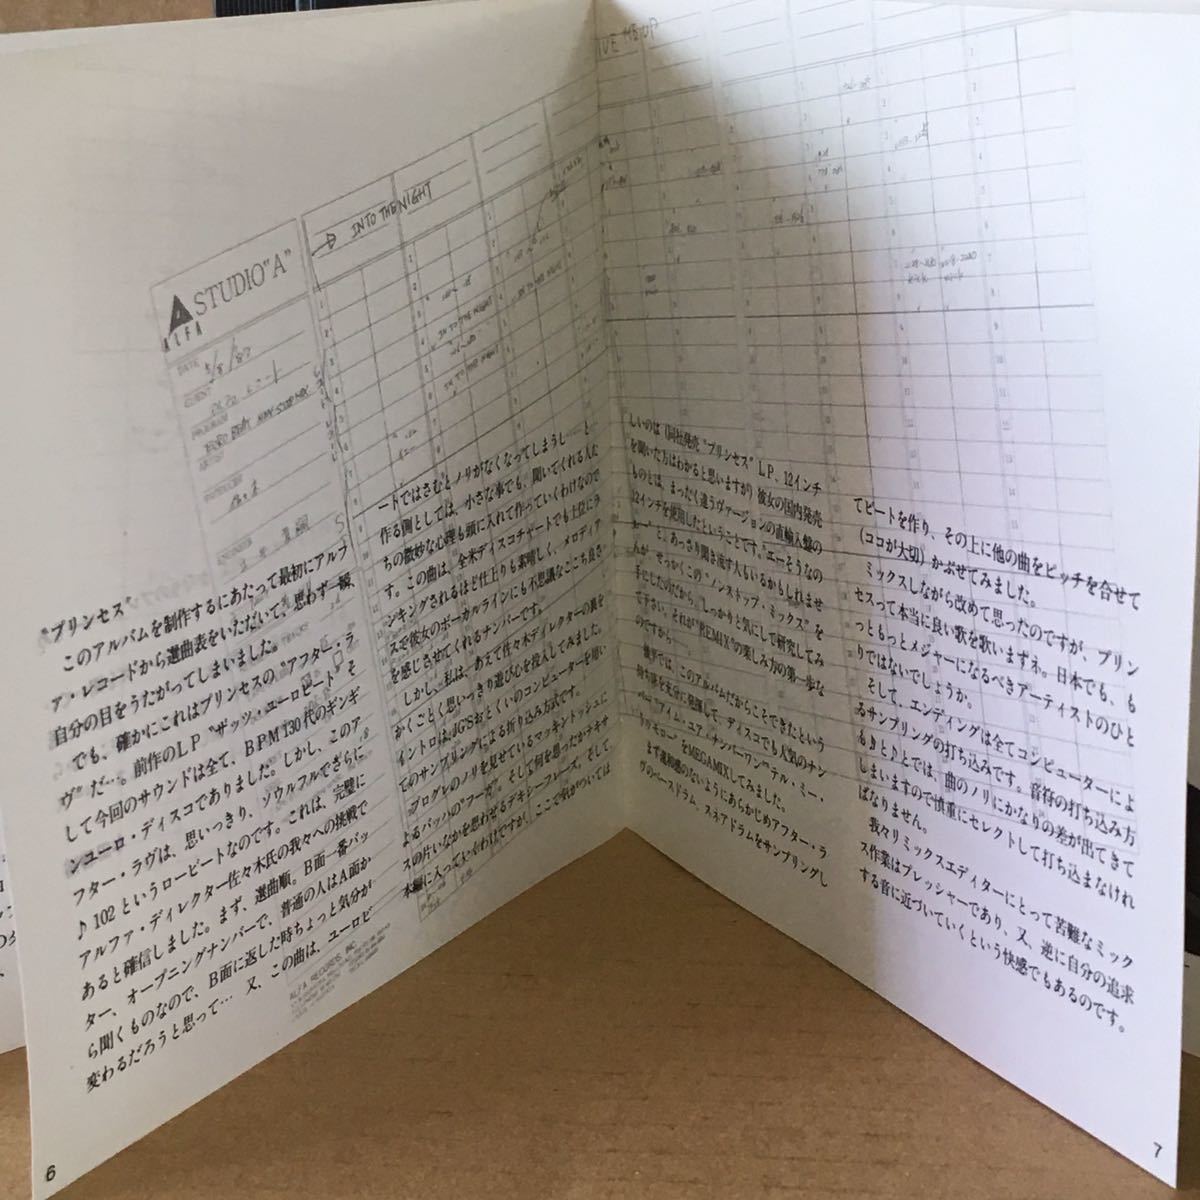 STUDIO "A"
ALFA
DATE 5/8/87
CLIENT
PROGRAM
EURO BEAT NON-STOP MIX
ARTIST
INTO THE NIGHT
IN TO THE NIGHT
IN TO THE NIGHT
“プリンセス”
このアルバムを制作するにあたって最初にアルフ
ァ・レコードから選曲表をいただいて、思わず一瞬、
自分の目をうたがってしまいました。
でも、確かにこれはプリンセスの“アフター・ラ
ヴ”だ…。前作のLP“ザッツ・ユーロビート”そ
して今回のサウンドは全て、BPM130代のギンギ
ンユーロ・ディスコでありました。しかし、このア
フター・ラヴは、思いっきり、ソウルフルでさらに
♪102というロービートなのです。これは、完璧に
アルファ・ディレクター佐々木氏の我々への挑戦で
あると確信しました。まず、選曲順。B面一番バッ
ター、オープニングナンバーで、普通の人はA面か
ら聞くものなので、B面に返した時ちょっと気分が
変わるだろうと思って… 又、この曲は、ユーロビ
ートではさむとノリがなくなってしまうし… と
作る側としては、小さな事でも、聞いてくれる人た
ちの微妙な心理も頭に入れて作っていくわけなので
す。この曲は、全米ディスコチャートでも上位にラ
ンキングされるほど仕上りも素晴しく、メロディア
スで彼女のボーカルラインにも不思議なここち良さ
を感じさせてくれるナンバーです。
しかし、私は、あえて佐々木ディレクターの裏を
かくごとく思いっきり遊び心を投入してみました。
イントロは、JG'Sおとくいのコンピューターを用い
てのサンプリングによる折り込み方式です。
プログレのノリを見せているマッキントッシュに
よるバッハの“フーガ”。そして何を思ったかテキサ
スの片いなかを思わせるデキシーフレーズ。そして、
本編に入っていくわけですが、ここで気がついてほ
しいのは(同社発売“プリンセス”LP、12インチ
を聞いた方はわかると思いますが)彼女の国内発売
ものとは、まったく違うヴァージョンの直輸入盤の
12インチを使用したということです。“エーそうなの
ぉー”と、あっさり聞き流す人もいるかもしれませ
んが、せっかくこの“ノンストップ・ミックス”を
手にしたのだから、しっかりと気にして研究してみ
て下さい。それが“REMIX”の楽しみ方の第一歩な
のですから。
後半では、このアルバムだからこそできたという
持ち味を充分に発揮して、ディスコでも人気のナン
バー“アイム・ユア・ナンバーワン”“テル・ミー・
トゥモロー”をMEGAMIXしてみました。
まず違和感のないようにあらかじめアフター・ラ
ヴのベースドラム、スネアドラムをサンプリングし
てビートを作り、その上に他の曲をピッチを合せて
(ココが大切)かぶせてみました。
ミックスしながら改めて思ったのですが、プリン
セスって本当に良い歌を歌いますネ。日本でも、も
っともっとメジャーになるべきアーティストのひと
りではないでしょうか。
そして、エンディングは全てコンピューターによ
るサンプリングの打ち込みです。音符の打ち込み方
も♪と♪とでは、曲のノリにかなりの差が出てきて
しまいますので慎重にセレクトして打ち込まなけれ
ばなりません。
我々リミックスエディターにとって苦難なミック
ス作業はプレッシャーであり、又、逆に自分の追求
する音に近づいていくという快感でもあるのです。
ALFA RECORDS, INC.
6
7